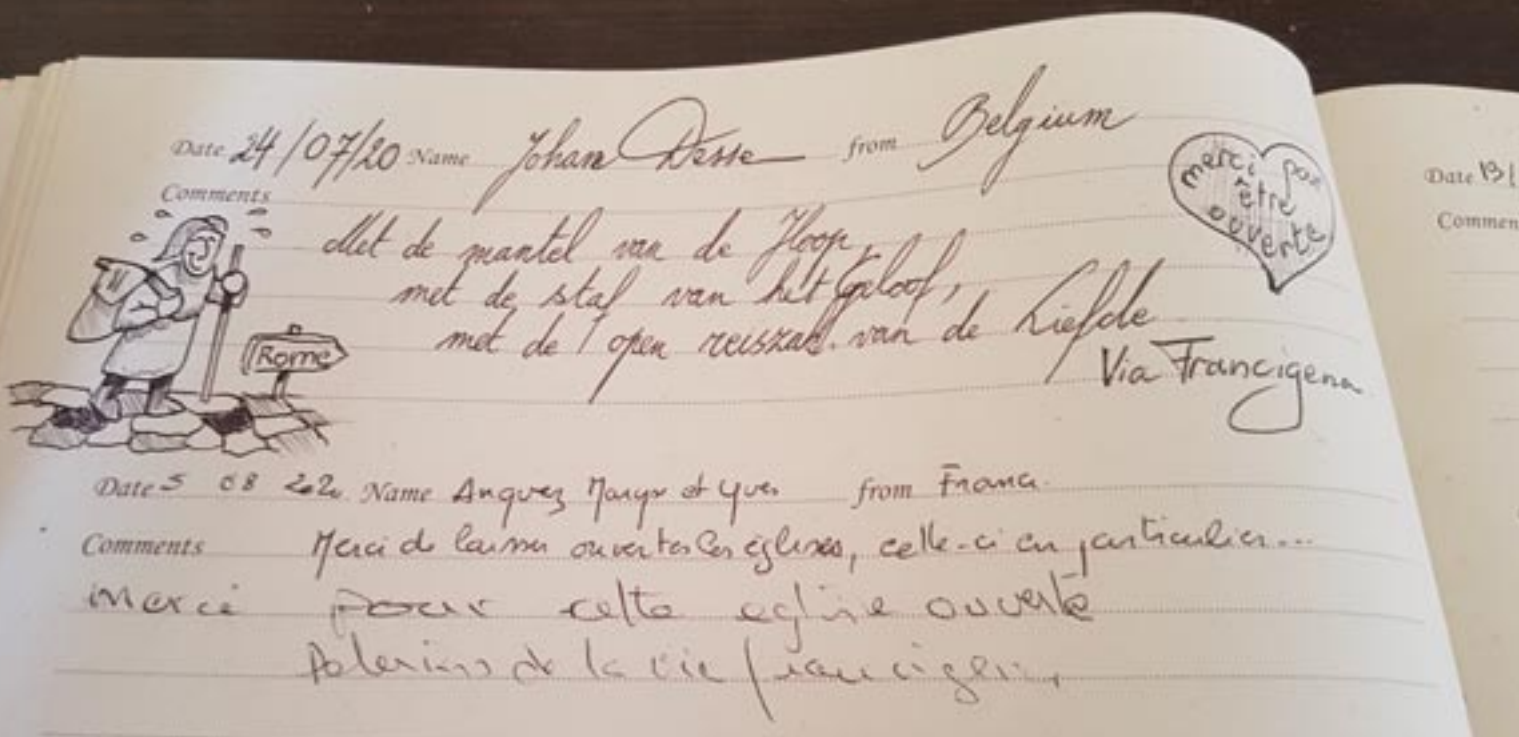 Date 24/07/20 Name Johan Desse from Belgium
Comments
merci par
être
ouverte
Met de mantel van de Hoop,
met de staf van het Geloof,
met de open reiszak van de Liefde
Rome
Via Francigena
Date 5 08 2020 Name Anquez et Yves from France
Comments Merci de laisser ouvertes les églises, celle-ci en particulier...
merci pour cette eglise ouverte
Pelerins de la vie francigena
Date 13/
Commen